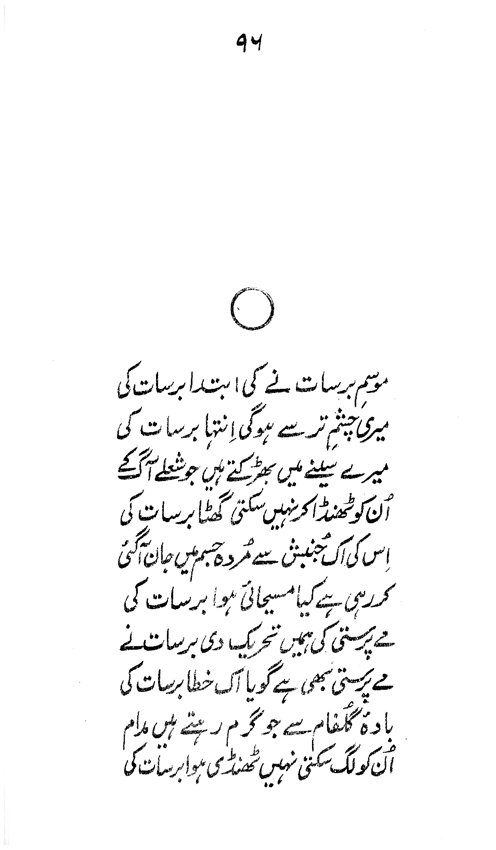 ۹۶
موسمِ برسات نے کی ابتدا برسات کی
میری چشمِ تر سے ہوگی اِنتہا برسات کی
میرے سینے میں بھڑکتے ہیں جو شعلے آگ کے
اُن کو ٹھنڈا کر نہیں سکتی گھٹا برسات کی
اِس کی اک جُنبش سے مُردہ جسم میں جان آگئی
کر رہی ہے کیا مسیحائی ہوا برسات کی
مے پرستی کی ہمیں تحریک دی برسات نے
مے پرستی بھی ہے گویا اک خطا برسات کی
بادۂ گلفام سے جو گرم رہتے ہیں مدام
اُن کو لگ سکتی نہیں ٹھنڈی ہوا برسات کی